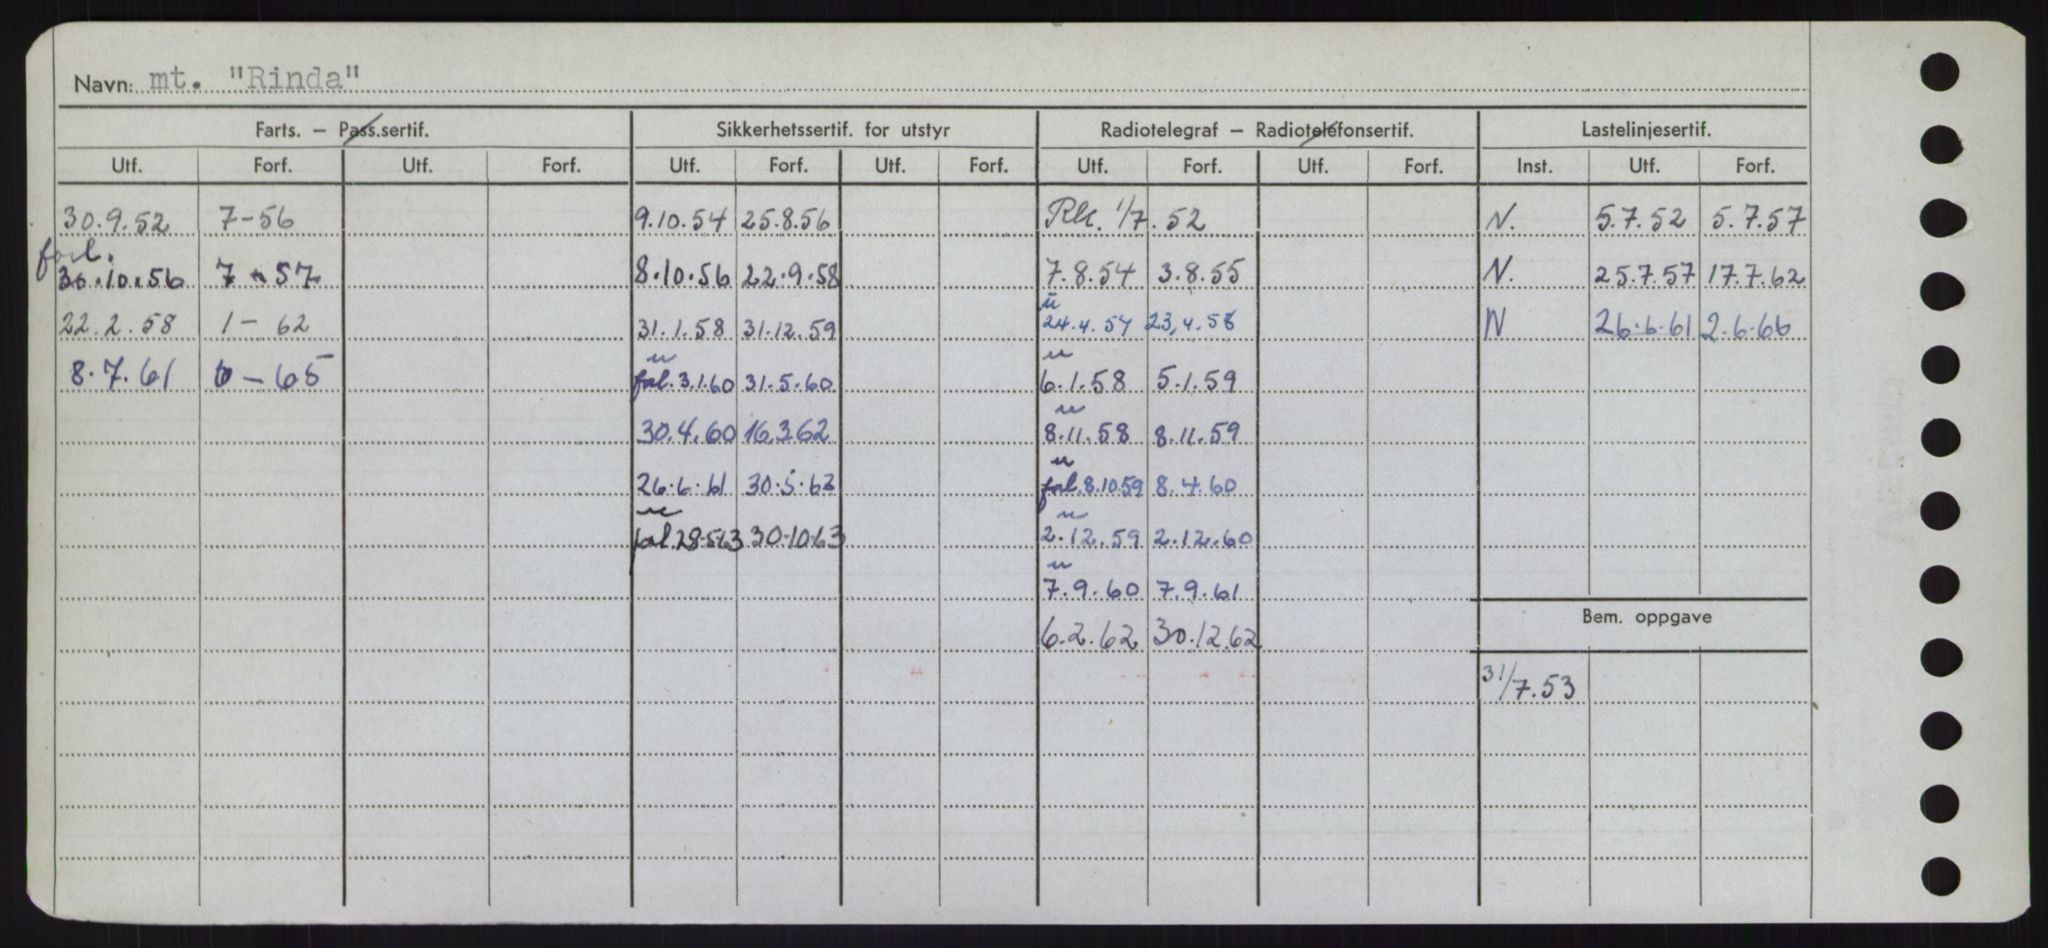 Navn: mt. "Rinda"
Farts. – Pass.sertif. Sikkerhetssertif. for utstyr Radiotelegraf – Radiotelefonsertif. Lastelinjesertif.
Utf. Forf. Utf. Forf. Utf. Forf. Utf. Forf. Utf. Forf. Utf. Forf. Inst. Utf. Forf.
30.9.52 7-56 9.10.54 25.8.56 Rk. 1/7.52 N. 5.7.52 5.7.57
forl.
30.10.56 7-57 8.10.56 22.9.58 7.8.54 3.8.55 N. 25.7.57 17.7.62
u
22.2.58 1-62 31.1.58 31.12.59 24.4.57 23,4.58 N 26.6.61 2.6.66
u u
8.7.61 6-65 forl. 3.1.60 31.5.60 6.1.58 5.1.59
u
30.4.60 16.3.62 8.11.58 8.11.59
u
26.6.61 30.5.63 forl. 8.10.59 8.4.60
u u
forl. 28.5.63 30.10.63 2.12.59 2.12.60
u
7.9.60 7.9.61
Bem. oppgave
6.2.62 30.12.62
31/7.53